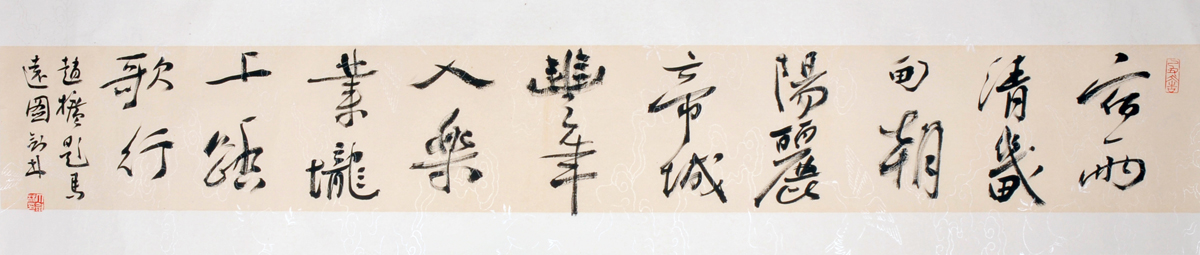 宿雨
清畿
甸朝
陽麗
帝城
豐年
人樂
業壠
上踏
歌行
趙擴題馬
遠圖